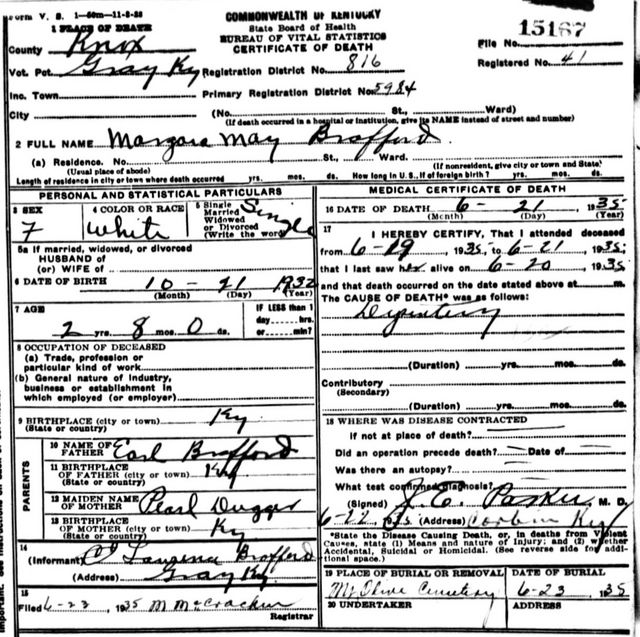 Form V. S. 1—50m—11-8-32
COMMONWEALTH OF KENTUCKY
State Board of Health
BUREAU OF VITAL STATISTICS
CERTIFICATE OF DEATH
1 PLACE OF DEATH
County Knox
Vot. Pct. Gray Ky Registration District No. 816
Inc. Town Primary Registration District No. 5984
File No. 15167
Registered No. 41
City (No. St., Ward)
(If death occurred in a hospital or institution, give its NAME instead of street and number)
2 FULL NAME Margara May Brafford
(a) Residence. No. St., Ward.
(Usual place of abode) (If nonresident, give city or town and State)
Length of residence in city or town where death occurred yrs. mos. ds. How long in U. S., if of foreign birth? yrs. mos. ds.
PERSONAL AND STATISTICAL PARTICULARS
3 SEX
F
4 COLOR OR RACE
White
5 Single
Married
Widowed
or Divorced
(Write the word)
Single
5a If married, widowed, or divorced
HUSBAND of
(or) WIFE of
6 DATE OF BIRTH 10 - 21 1932
(Month) (Day) (Year)
7 AGE
2 yrs. 8 mos. 0 ds.
IF LESS than 1
day hrs.
or min?
8 OCCUPATION OF DECEASED
(a) Trade, profession or
particular kind of work
(b) General nature of industry,
business or establishment in
which employed (or employer)
9 BIRTHPLACE (city or town) Ky
(State or country)
PARENTS
10 NAME OF
FATHER Earl Brafford
11 BIRTHPLACE
OF FATHER (city or town) Ky
(State or country)
12 MAIDEN NAME
OF MOTHER Pearl Dugger
13 BIRTHPLACE
OF MOTHER (city or town) Ky
(State or country)
14
(Informant) Brafford
(Address) Gray Ky
15
Filed 6-23 1935 M McCracken
Registrar
MEDICAL CERTIFICATE OF DEATH
16 DATE OF DEATH 6 - 21 1935
(Month) (Day) (Year)
17
I HEREBY CERTIFY, That I attended deceased
from 6-19 1935, to 6-21, 1935;
that I last saw her alive on 6-20 1935
and that death occurred on the date stated above at m.
The CAUSE OF DEATH* was as follows:
Dysentery
(Duration) yrs. mos. ds.
Contributory
(Secondary)
(Duration) yrs. mos. ds.
18 WHERE WAS DISEASE CONTRACTED
If not at place of death?
Did an operation precede death? Date of
Was there an autopsy?
What test confirmed diagnosis?
(Signed) J. C. Parker M. D.
6-22 1935 (Address) Corbin Ky
*State the Disease Causing Death, or, in deaths from Violent
Causes, state (1) Means and nature of Injury; and (2) whether
Accidental, Suicidal or Homicidal. (See reverse side for additional space.)
19 PLACE OF BURIAL OR REMOVAL
Mt Olive Cemetery
DATE OF BURIAL
6-23 1935
20 UNDERTAKER
ADDRESS